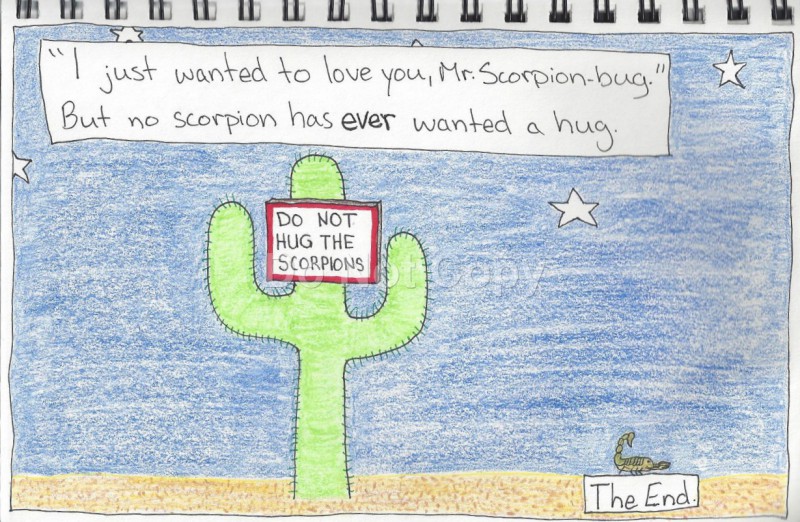 "I just wanted to love you, Mr. Scorpion-bug."
But no scorpion has ever wanted a hug.
DO NOT
HUG THE
SCORPIONS
Do Not Copy
The End.